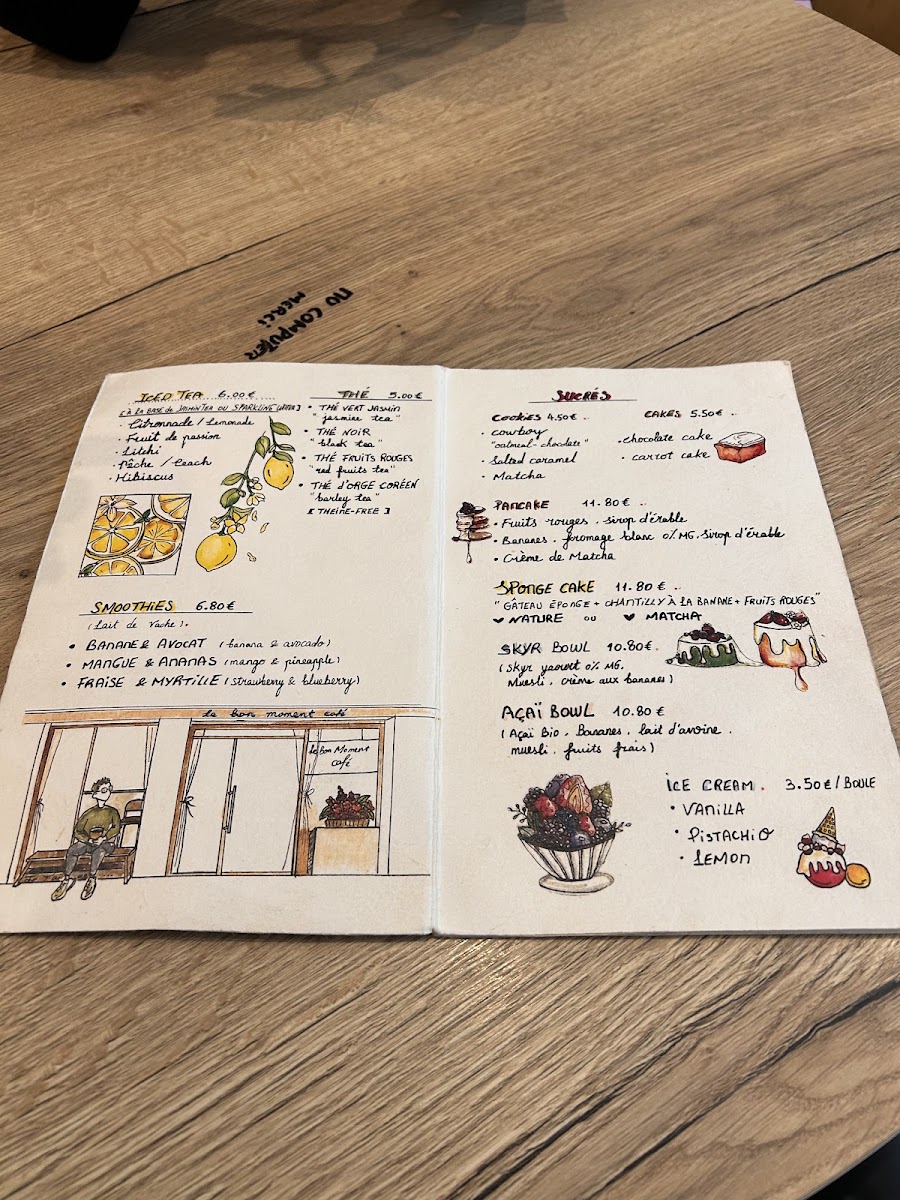 NO COMPUTER
MERCI
ICED TEA 6.00€
[À LA BASE DE JASMIN TEA OU SPARKLING WATER]
• Citronnade / Lemonade
• Fruit de passion
• Litchi
• Pêche / Peach
• Hibiscus
THÉ 5.00€
• THÉ VERT JASMIN
"jasmine tea"
• THÉ NOIR
"black tea"
• THÉ FRUITS ROUGES
"red fruits tea"
• THÉ D'ORGE CORÉEN
"barley tea"
[THEINE-FREE]
SMOOTHIES 6.80€
(lait de vache).
• BANANE & AVOCAT (banana & avocado)
• MANGUE & ANANAS (mango & pineapple)
• FRAISE & MYRTILLE (strawberry & blueberry)
le bon moment café
Le Bon Moment
café
SUCRÉS
COOKIES 4.50€ ..
• Cowboy
"oatmeal-chocolate"
• Salted caramel
• Matcha
CAKES 5.50€ ..
• chocolate cake
• carrot cake
PANCAKE 11.80€ ..
• Fruits rouges . sirop d'érable
• Bananes . fromage blanc 0% MG. Sirop d'érable
• Crème de Matcha
SPONGE CAKE 11.80€ ..
"GÂTEAU ÉPONGE + CHANTILLY À LA BANANE + FRUITS ROUGES"
♥ NATURE OU ♥ MATCHA
SKYR BOWL 10.80€.
(Skyr yaourt 0% MG.
Muesli . crème aux bananes)
AÇAÏ BOWL 10.80€
(Açaï Bio . Bananes . lait d'avoine .
muesli . fruits frais)
ICE CREAM . 3.50€/BOULE
• VANILLA
• PISTACHIO
• LEMON